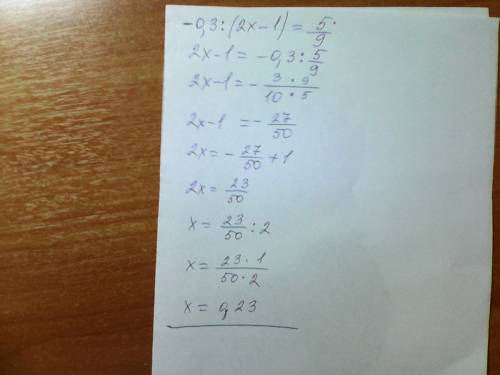 -0,3 : (2x-1) = 5/9
2x-1 = -0,3 : 5/9
2x-1 = - 3 * 9 / 10 * 5
2x-1 = - 27/50
2x = - 27/50 + 1
2x = 23/50
x = 23/50 : 2
x = 23 * 1 / 50 * 2
x = 0,23